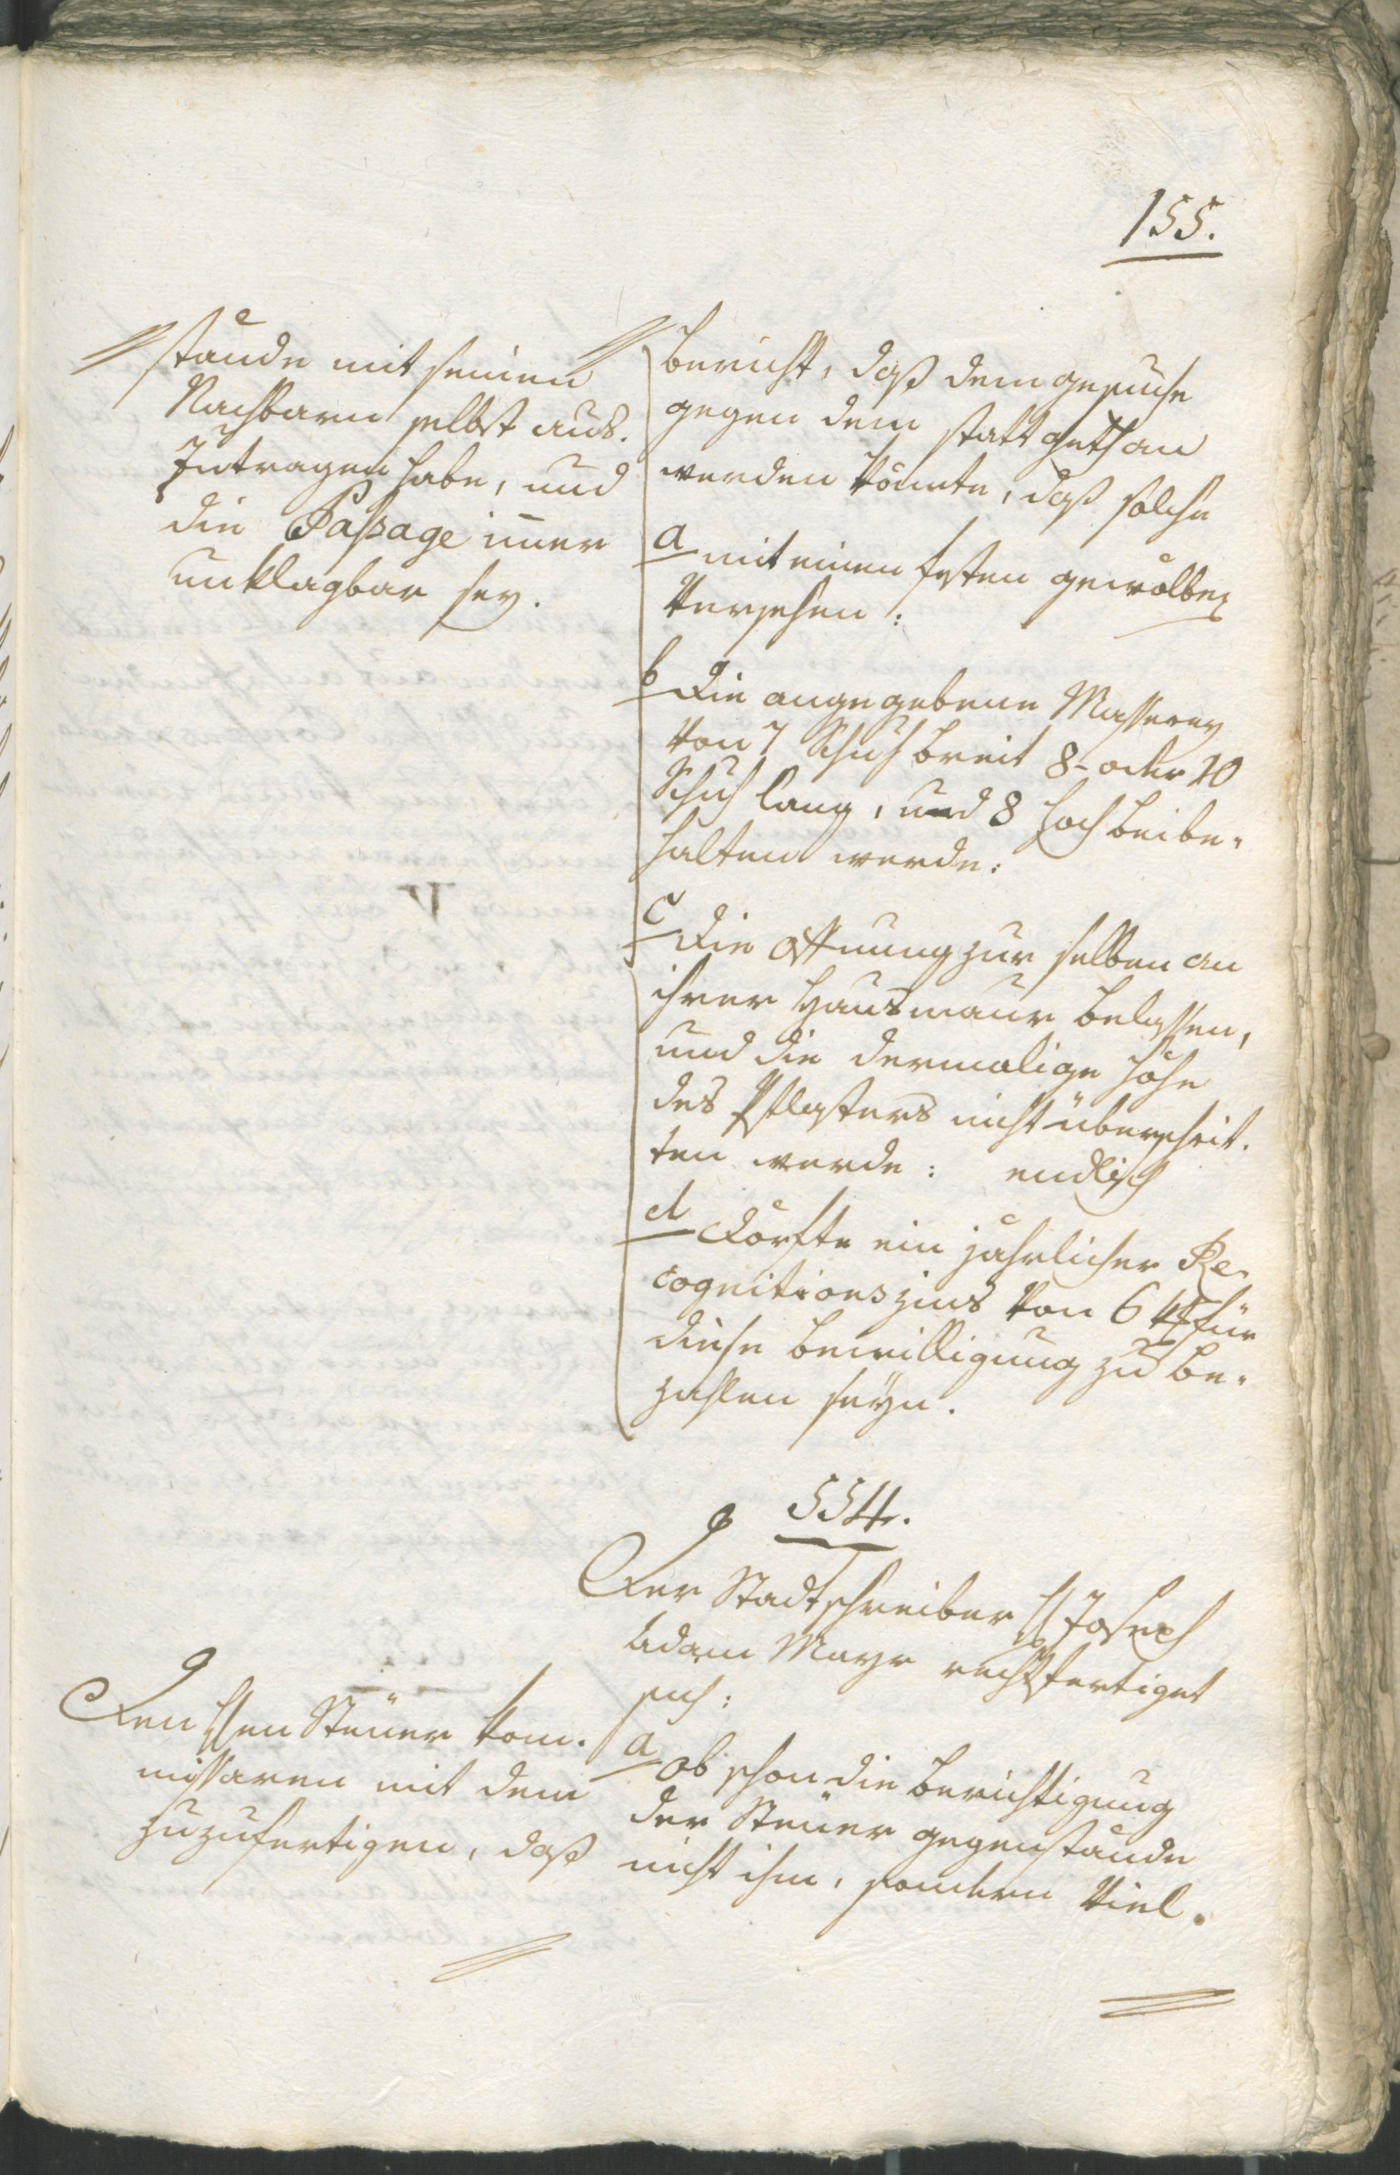 155.
stände mit seinen
Nachbarn selbst aus-
zutragen habe, und
die Passage im̄er
unklagbar sey.
bericht, daß dem gesuche
gegen dem statt gethan
werden könnte, daß solche
a mit einen festen gewölbe
versehen:
b Die angegebene Masserey
von 7 Schuh breit 8- oder 10
Schuh lang, und 8 hoch beibe-
halten werde:
c Die öffnung zur selben an
ihrer Hausmaur belassen,
und die dermalige höhe
des Pflasters nicht überschrit-
ten werde: endlich
d Dörfte ein jährlicher Re-
cognitionszins von 6 für
diese bewilligung zu be-
zahlen seyn.
554.
Der Stadtschreiber H Joseph
Adam Mayr rechtfertiget
sich:
a ob schon die berichtigung
der Steuer gegenstände
nicht ihm, sondern viel-
Den H͞en Steuer kom-
missaren mit dem
zuzufertigen, daß